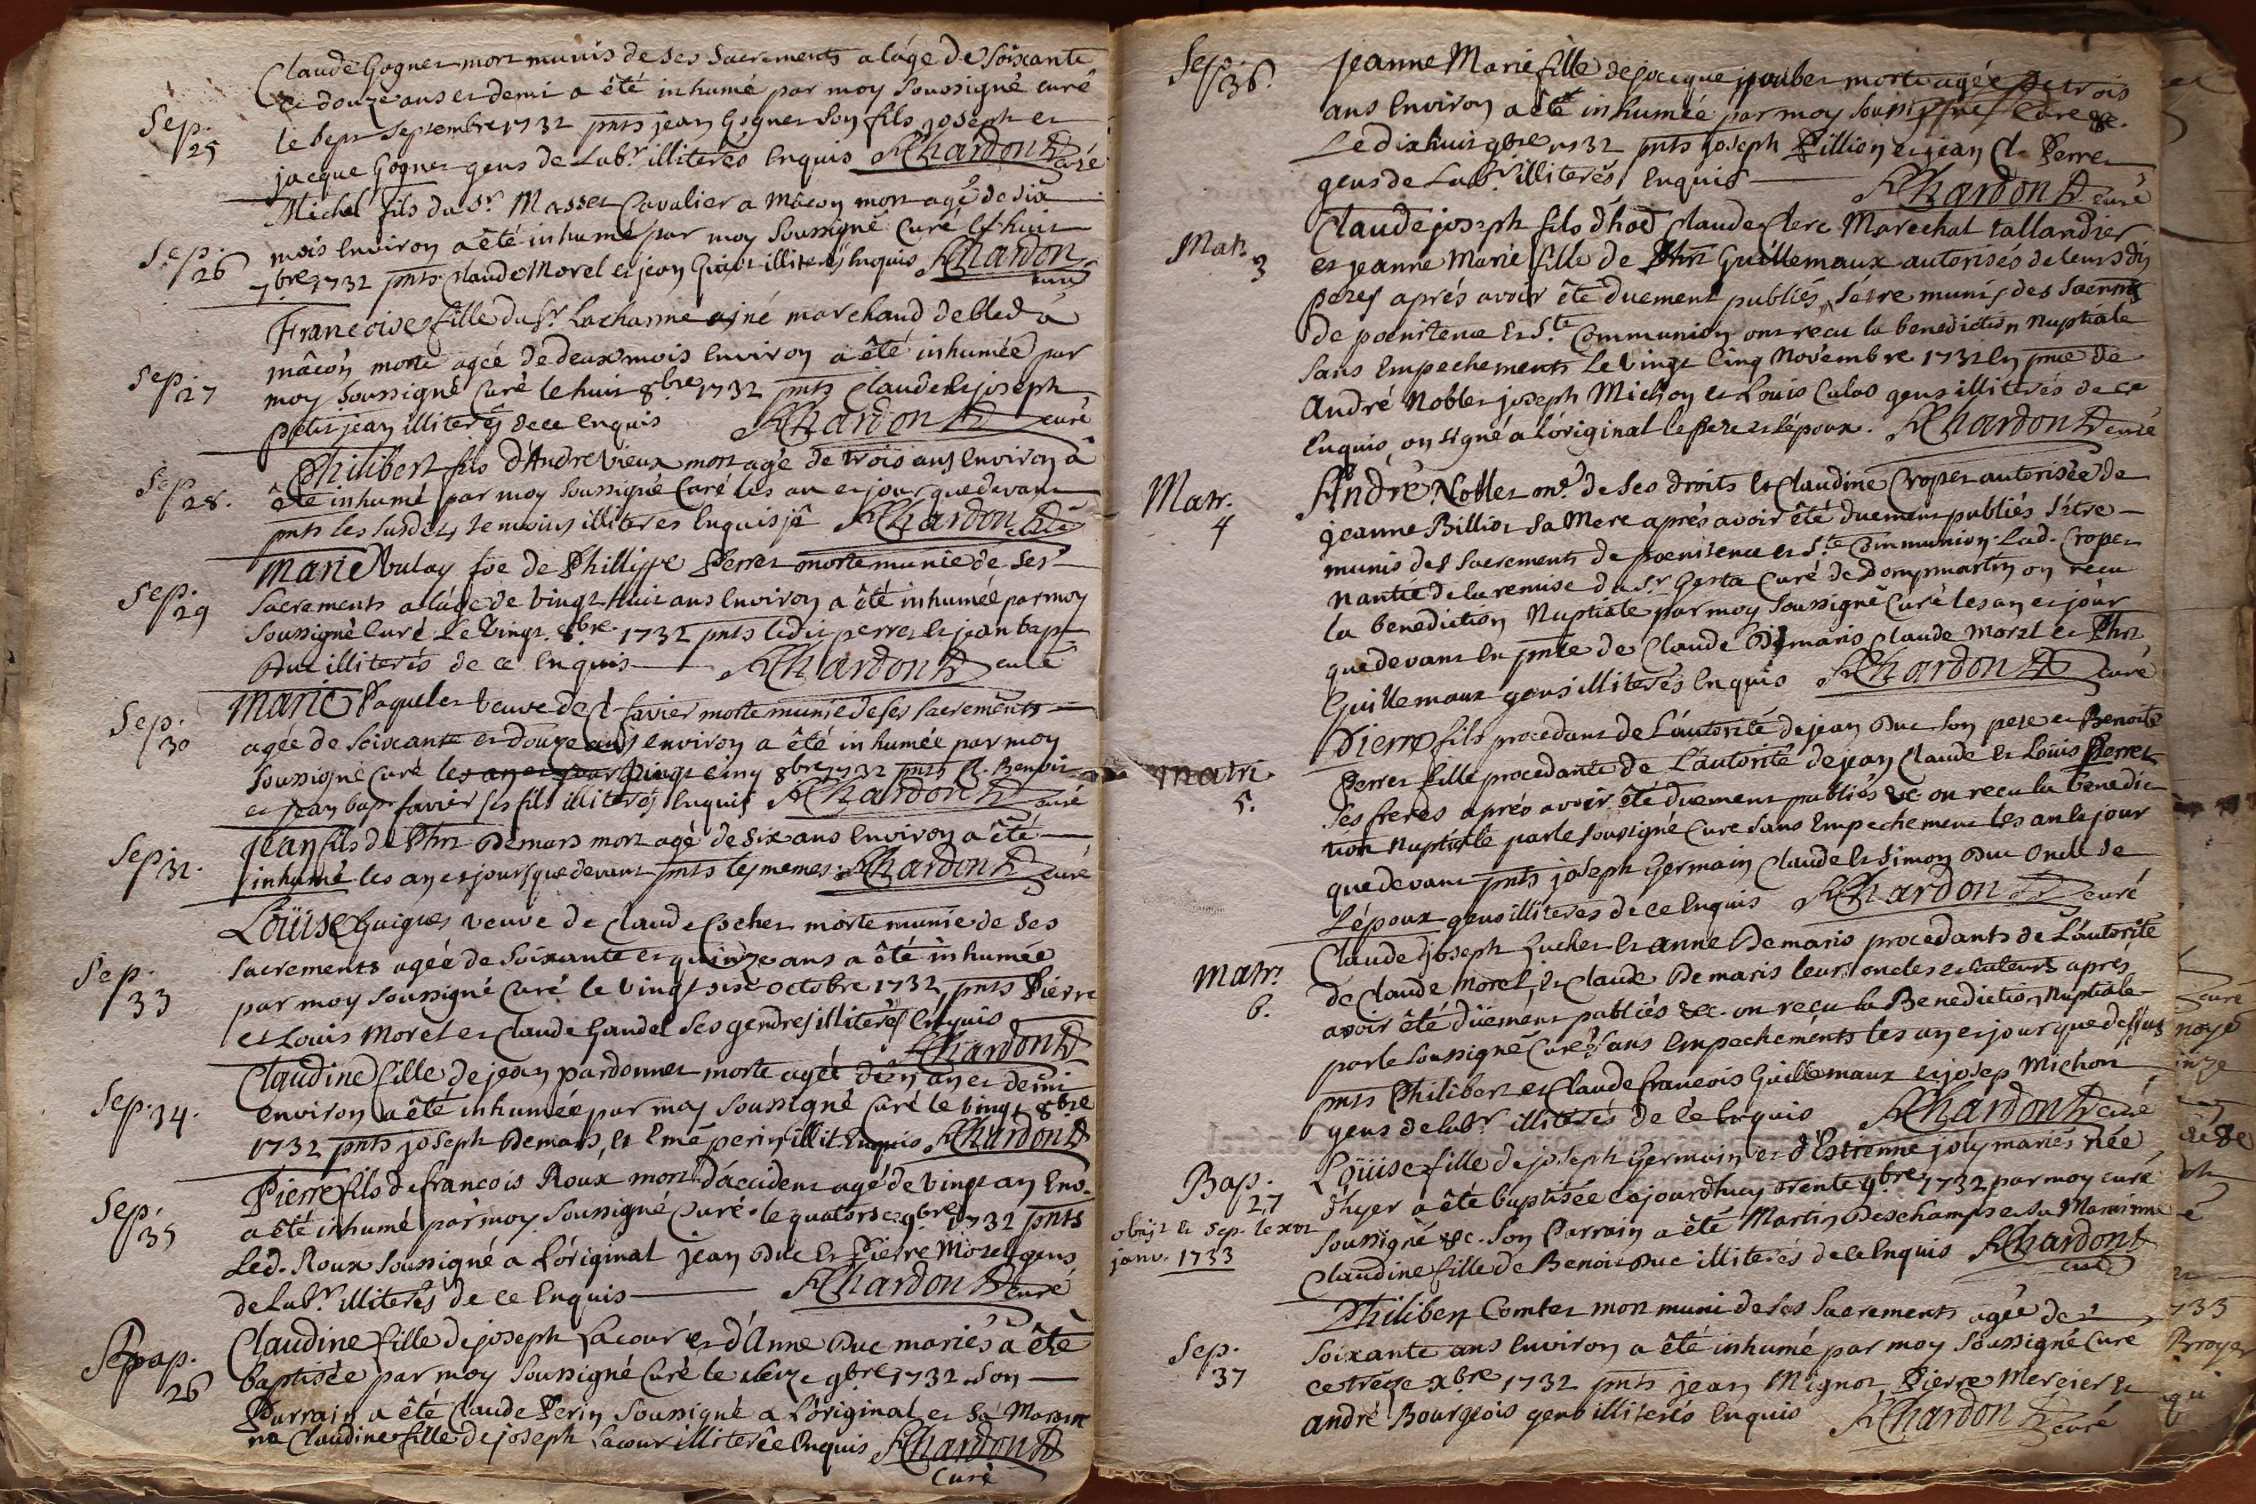 Claude Gognet mort munis de ses Sacrements a láge de Soixante
et douze ans et demi a êté inhumé par moy Soussigné curé
Sep. 25
le Sept Septembre 1732 pnts jean Gognet Son fils joseph et
jacque Gognet gens de Labr. illiterés Enquis Chardon curé
Michel fils du Sr. Masset Cavalier a Mâcon mort agé de six
Sep. 26
mois Environ a êté inhumé par moy Soussigné Curé le huit
7bre 1732 pnts Claude Morel et jean Guiot illiterés Enquis Chardon curé
Francoise fille du Sr. Lacharme ajné marchand de bled a
Sep. 27
mâcon morte agéé de deux mois Environ a êté inhumée par
moy Soussigné Curé le huit 8bre 1732 pnts Claude et joseph
petit jean illiterés de ce Enquis Chardon curé
Philibert fils d'André Vieux mort agé de trois ans Environ a
Sep. 28.
êté inhumé par moy Soussigné Curé les an et jour que devant
pnts les Susdits temoins illiteres Enquis Chardon curé
Marie fõe de Phillippe Perret morte munie de ses
Sep. 29
Sacrements a láge de Vingt huit ans Environ a êté inhumée par moy
Soussigné Curé le Vingt 8bre 1732 pnts ledit perret et jean bapt
Duc illiterés de ce Enquis Chardon curé
Marie Paquelet Veuve de Cl favier morte munie de ses sacrements
Sep. 30
agée de Soixante et Douze ans environ a êté inhumée par moy
Soussigné Curé les an et jour Vingt cinq 8bre 1732 pnts Cl. Benoit
et jean bapt favier ses fils illiterés Enquis Chardon curé
Sep. 31.
jean fils de Phrt Demars mort agé de six ans Environ a êté
inhumé les an et jour que devant pnts les memes Chardon curé
Loüise Guigues veuve de Claude morte munie de ses
Sep. 33
sacrements agéé de Soixante et quinze ans a êté inhumée
par moy Soussigné Curé le vingt six octobre 1732, pnts Pierre
et Louis Morel et Claude Gandel Ses gendres illiterés Enquis
Chardon
Claudine fille de jean pardonnet morte agéé d'un an et demi
Sep. 34.
environ a êté inhumée par moy Soussigné Curé le vingt 8bre
1732 pnts joseph Demars, et Emé perin illit Enquis Chardon
Pierre fils de francois Roux mort d'accident agé de Vingt an Env.
Sep. 35
a êté inhumé par moy Soussigné Curé le quatorze 9bre 1732 pnts
Led. Roux Soussigné a Lóriginal jean Duc et Pierre Morel gens
de Labr. illiterés de ce Enquis Chardon curé
Claudine fille de joseph Lacour et d'Anne Duc mariés a êté
Bap. 26
baptisée par moy Soussigné Curé le 9bre 1732 Son
Parrain a êté Claude Perin Soussigné a Lóriginal et Sa Marain
ne Claudine fille de joseph Lacour illiterée Enquis Chardon
Curé
Sep. 36.
jeanne Marie fille de jacque joubet morte agée de trois
ans Environ a êté inhumée par moy Soussigné Curé &c.
Le dix huit 9bre 1732 pnts joseph Pillion et jean Cl. Perret
gens de Labr. illiterés Enquis Chardon curé
Claude joseph fils d'hoe Claude Clerc Marechal tallandier
Matr. 3
et jeanne Marie fille de Phrt Guillemaux autorisés de leurs dis
peres aprés avoir êté duement publiés, Setre munis des Sacrnts
de poenitence et Ste. Communion ont recu la benediction Nuptiale
Sans Empechements le Vingt Cinq Novembre 1732 en pnce de
André Noblet joseph Michon et Louis Culas gens illiterés de ce
Enquis, on signé a lóriginal le Pere et lépoux. Chardon curé
Matr. 4
André Noblet me. de Ses droits et Claudine Cropet autorisée de
jeanne Billiot Sa Mere aprés avoir êté duement publiés S'être
munis des Sacrements de poenitence et Ste. Communion. Lad. Cropet
nantie de la remise du Sr Gesta Curé de Dompmartin on recu
la benediction Nuptiale par moy Soussigné Curé les an et jour
que devant en pnce de Claude Demaris Claude Morel et Phrt
Guillemaux gens illiterés Enquis Chardon curé
Pierre fils procedant de Láutorité de jean Duc Son pere et Benoite
Matri. 5.
Perret fille procedante de Láutorité de jean Claude et Louis Perret
Ses freres aprés avoir êté duement publiés &c on recu la benedic
tion Nuptiale par le Soussigné Cure Sans Empechement les an et jour
que devant pnts joseph Germain Claude et Simon Duc Oncle de
Lépoux gens illiteres de ce Enquis Chardon curé
Claude joseph Luchet et anne Demaris procedants de Láutorité
Matr. 6.
de Claude Morel, et Claude Demaris leurs oncles et tuteurs apres
avoir êté düement publiés &c. on recu la Benediction Nuptiale
par le Soussigné Curé Sans empechements les an et jour que dessus
pnts Philibert et Claude francois Guillemaux et josep Michon
gens de labr. illiterés de ce Enquis Chardon curé
Loüise fille de joseph Germain et d'Estienne joly mariés née
Bap. 27
d'hyer a êté baptisée cejourdhuy trente 9bre 1732 par moy curé
obiit et Sep. le xvi
janv. 1733
Soussigné &c. Son Parrain a êté Martin Deschamps et Sa Marainne
Claudine fille de Benoit Duc illiterés de ce Enquis Chardon
curé
Philibert Comtet mort muni de ses Sacrements agée de
Sep. 37
Soixante ans Environ a êté inhumé par moy Soussigné Curé
ce treize xbre 1732 pnts jean Mignot, Pierre Mercier et
andré Bourgeois gens illiterés Enquis Chardon curé